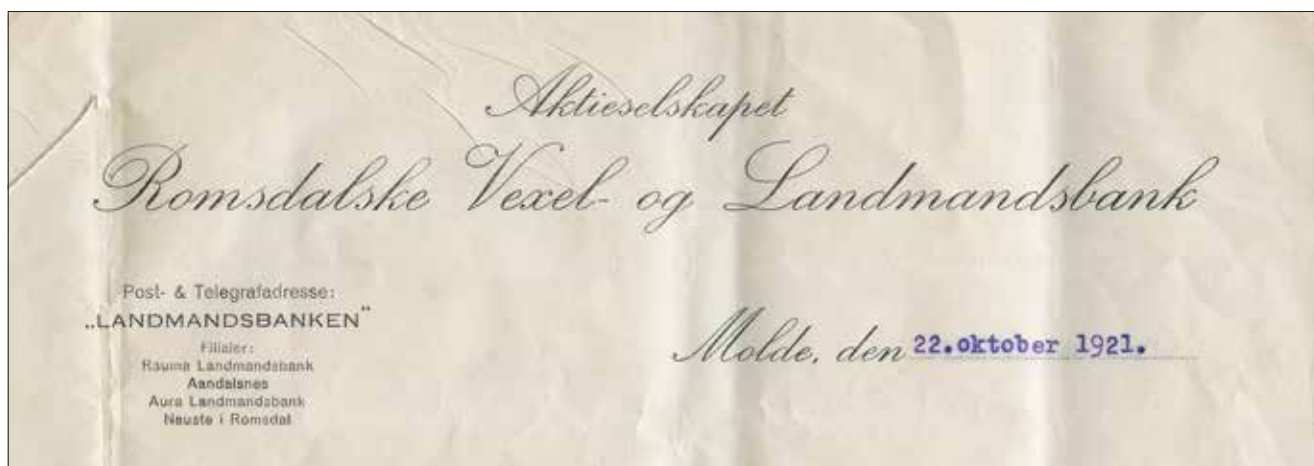 Aktieselskapet
Romsdalske Vexel- og Landmandsbank
Post- & Telegrafadresse:
„LANDMANDSBANKEN"
Filialer:
Rauma Landmandsbank
Aandalsnes
Aura Landmandsbank
Nauste i Romsdal
Molde, den 22.oktober 1921.